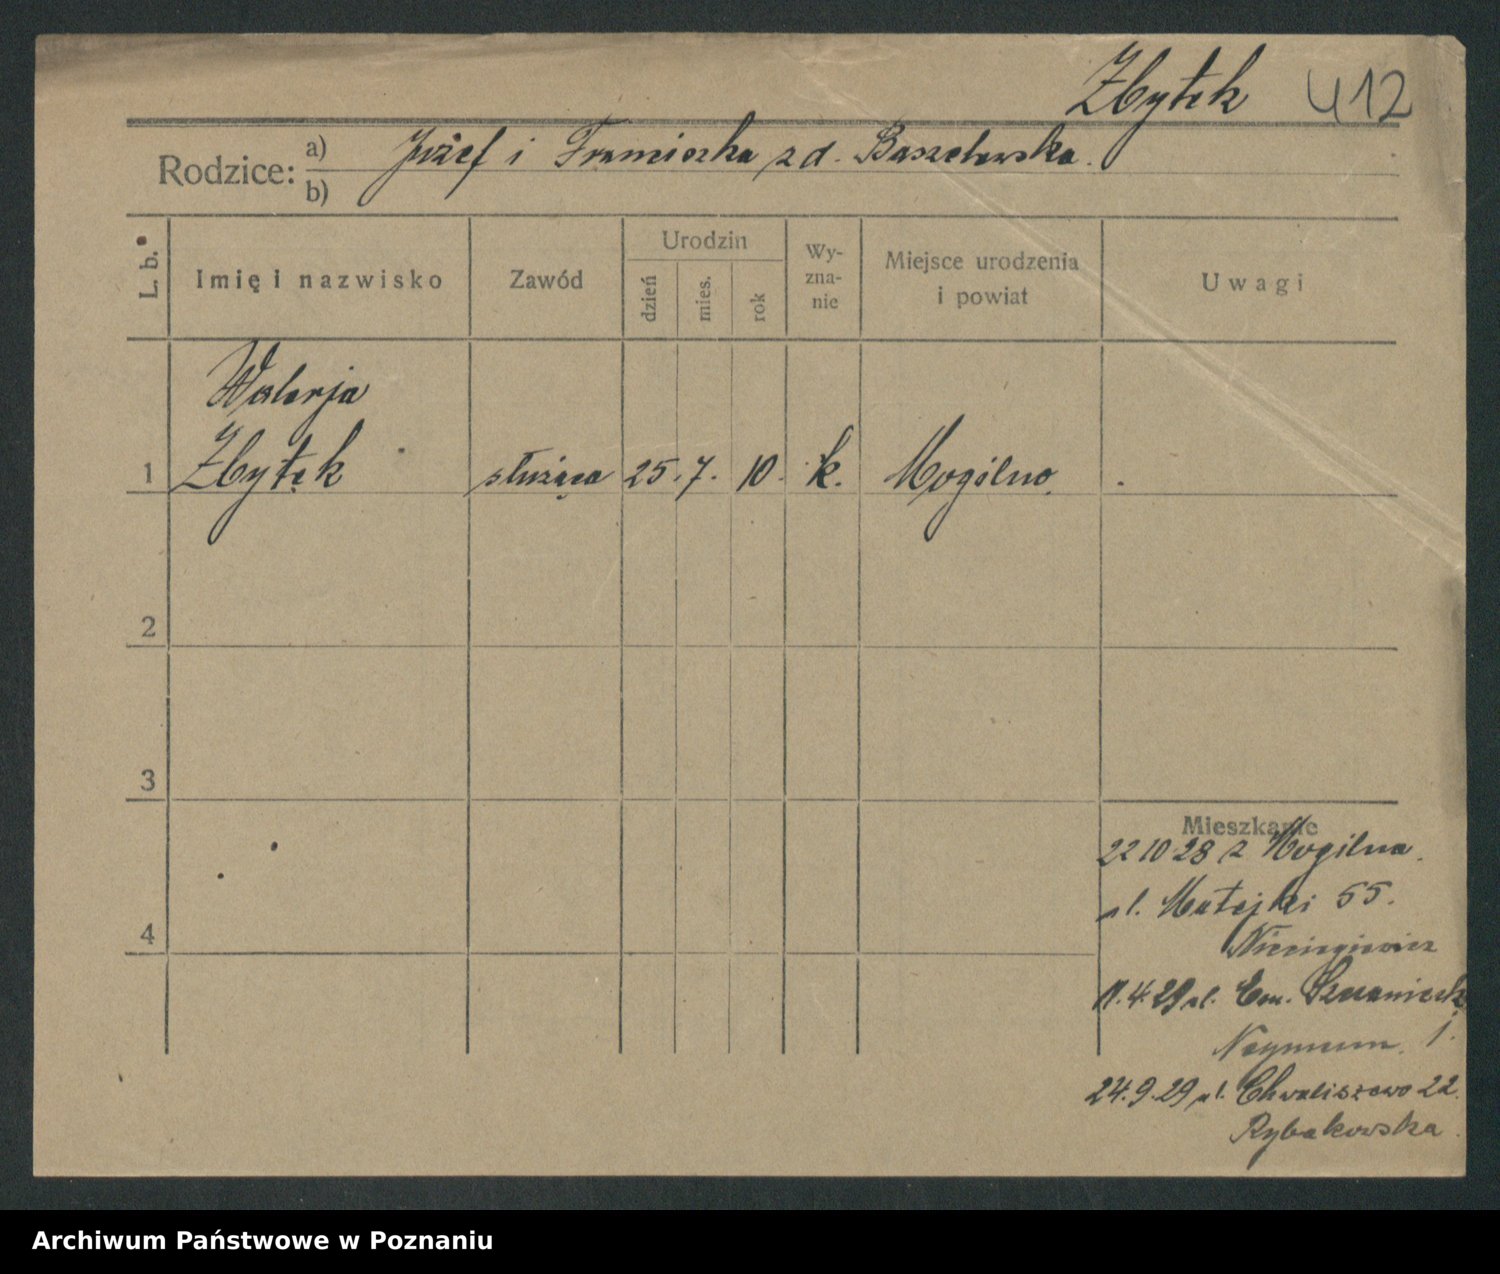 Zbytek 412
Rodzice: a) Józef i Franciszka z d. Baszelewska.
b)
L. b. Imię i nazwisko Zawód Urodzin dzień mies. rok Wy-zna-nie Miejsce urodzenia i powiat Uwagi
Walerja
1 Zbytek służąca 25. 7. 10. k. Mogilno.
2
3
Mieszkanie
22 10 28 z Mogilna.
ul. Matejki 55.
4
11.4.29 ul. Em.
24.9.29 ul. Chwaliszewo 22.
Rybakowska.
Archiwum Państwowe w Poznaniu